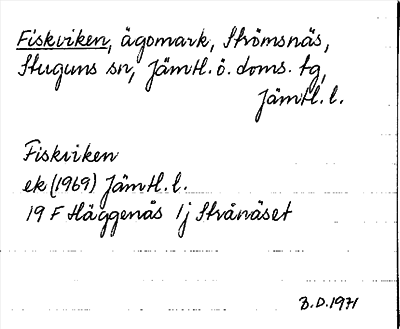 Fiskviken, ägomark, Strömsnäs,
Stuguns sn, Jämtl. ö. doms. tg,
Jämtl. l.
Fiskviken
ek (1969) Jämtl. l.
19 F Häggenås 1j Stranäset
B.D. 1971